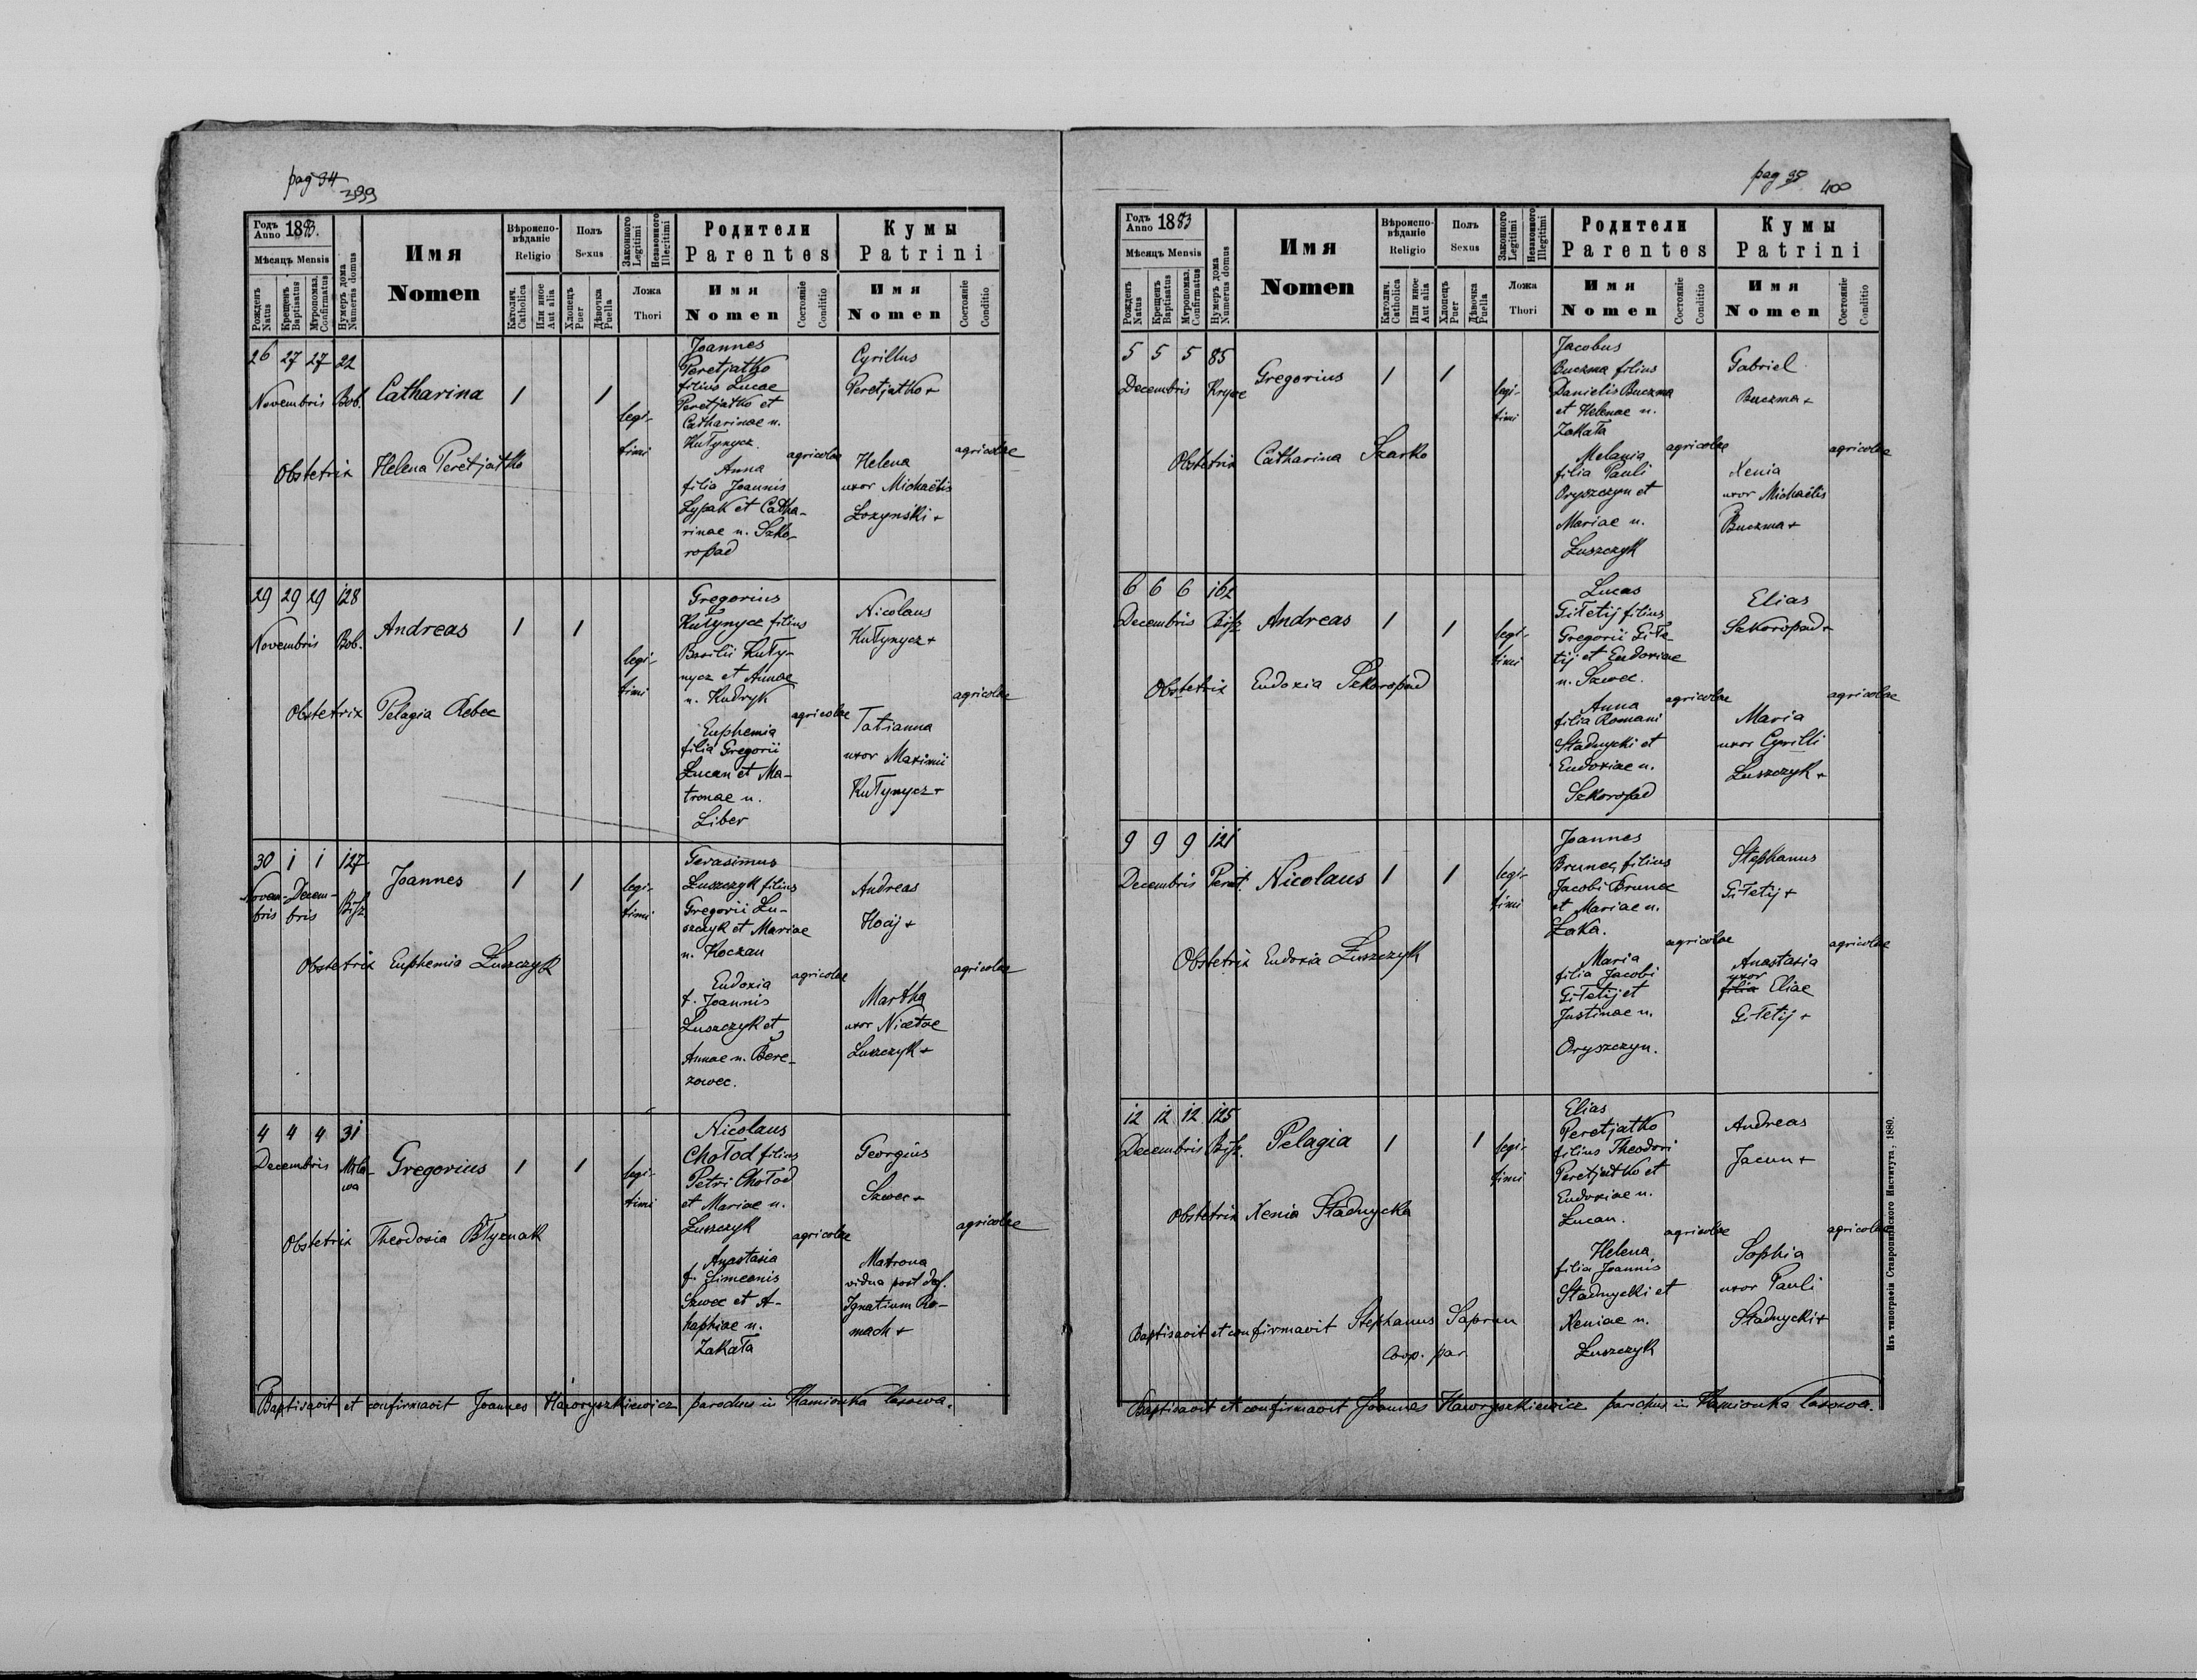 pag 94
399
Годъ Anno 1883.
Мѣсяцъ Mensis
Рожденъ Natus
Крещенъ Baptisatus
Мѵропомаз. Confirmatus
Нумеръ дома Numerus domus
Имя
Nomen
Вѣроиспо-
вѣданіе
Religio
Католич. Catholica
Или иное Aut alia
Полъ
Sexus
Хлопецъ Puer
Дѣвочка Puella
Законного Legitimi
Незаконного Illegitimi
Ложа
Thori
Родители
Parentes
Имя
Nomen
Состояніе Conditio
Кумы
Patrini
Имя
Nomen
Состояніе Conditio
26 27 27 22
Novembris Bob.
Catharina
1 1
legi-
timi
Obstetrix Helena Peretjatko
Joannes
Peretjatko
filius Lucae
Peretjatko et
Catharinae n.
Kułynycz.
Anna
filia Joannis
Łypak et Catha-
rinae n. Szko-
ropad
agricolae
Cyrillus
Peretjatko +
Helena
uxor Michaelis
Łozynski +
agricolae
29 29 29 128
Novembris Bob.
Andreas
1 1
legi-
timi
Obstetrix Pelagia Rebec
Gregorius
Kułynycz filius
Basilii Kuły-
nycz et Annae
n. Kudryk
Euphemia
filia Gregorii
Łucan et Ma-
tronae n.
Liber
agricolae
Nicolaus
Kułynycz +
Tatianna
uxor Maximi
Kułynycz +
agricolae
30 1 1 127
Novem- Decem-
bris bris
Joannes
1 1
legi-
timi
Obstetrix Euphemia Łuszczyk
Gerasimus
Łuszczyk filius
Gregorii Łu-
szczyk et Mariae
n. Koczan
Eudoxia
f. Joannis
Łuszczyk et
Annae n. Bere-
zowec.
agricolae
Andreas
Hocij +
Martha
uxor Nicetae
Łuszczyk +
agricolae
4 4 4 31
Decembris
Gregorius
1 1
legi-
timi
Obstetrix Theodosia Błyznak
Nicolaus
Chołod filius
Petri Chołod
et Mariae n.
Łuszczyk
Anastasia
f. Simeonis
Szwec et A-
haphiae n.
Zakała
agricolae
Georgius
Szwec +
Matrona
vidua post def.
Ignatium Ro-
mach +
agricolae
Baptisavit et confirmavit Joannes Haworyszkiewicz parochus in Kamionka lasowa.
pag 95
400
Годъ Anno 1883
Мѣсяцъ Mensis
Рожденъ Natus
Крещенъ Baptisatus
Мѵропомаз. Confirmatus
Нумеръ дома Numerus domus
Имя
Nomen
Вѣроиспо-
вѣданіе
Religio
Католич. Catholica
Или иное Aut alia
Полъ
Sexus
Хлопецъ Puer
Дѣвочка Puella
Законного Legitimi
Незаконного Illegitimi
Ложа
Thori
Родители
Parentes
Имя
Nomen
Состояніе Conditio
Кумы
Patrini
Имя
Nomen
Состояніе Conditio
5 5 5 85
Decembris
Gregorius
1 1
legi-
timi
Obstetrix Catharina Szarko
Jacobus
Buczma filius
Danielis Buczma
et Helenae n.
Zakała
Melania
filia Pauli
Oryszczyn et
Mariae n.
Łuszczyk
agricolae
Gabriel
Buczma +
Xenia
uxor Michaelis
Buczma +
agricolae
6 6 6 162
Decembris
Andreas
1 1
legi-
timi
Obstetrix Eudoxia Szkoropad
Lucas
Giłetij filius
Gregorii Giłe-
tij et Eudoxiae
n. Szwec.
Anna
filia Romani
Stadnycki et
Eudoxiae n.
Szkoropad
agricolae
Elias
Szkoropad +
Maria
uxor Cyrilli
Łuszczyk +
agricolae
9 9 9 121
Decembris Peret.
Nicolaus
1 1
legi-
timi
Obstetrix Eudoxia Łuszczyk
Joannes
Brunec filius
Jacobi Brunec
et Mariae n.
Łaka.
Maria
filia Jacobi
Giłetij et
Justinae n.
Oryszczyn.
agricolae
Stephanus
Giłetij +
Anastasia
uxor
filia Eliae
Giłetij +
agricolae
12 12 12 125
Decembris
Pelagia
1 1
legi-
timi
Obstetrix Xenia Stadnycka
Elias
Peretjatko
filius Theodori
Peretjatko et
Eudoxiae n.
Łucan.
Helena
filia Joannis
Stadnycki et
Xeniae n.
Łuszczyk
agricolae
Andreas
Jacun +
Sophia
uxor Pauli
Stadnycki +
agricolae
Baptisavit et confirmavit Stephanus Saprun
Coop. par.
Baptisavit et confirmavit Joannes Haworyszkiewicz parochus in Kamionka lasowa.
Изъ типографіи Ставропигійского Института, 1880.